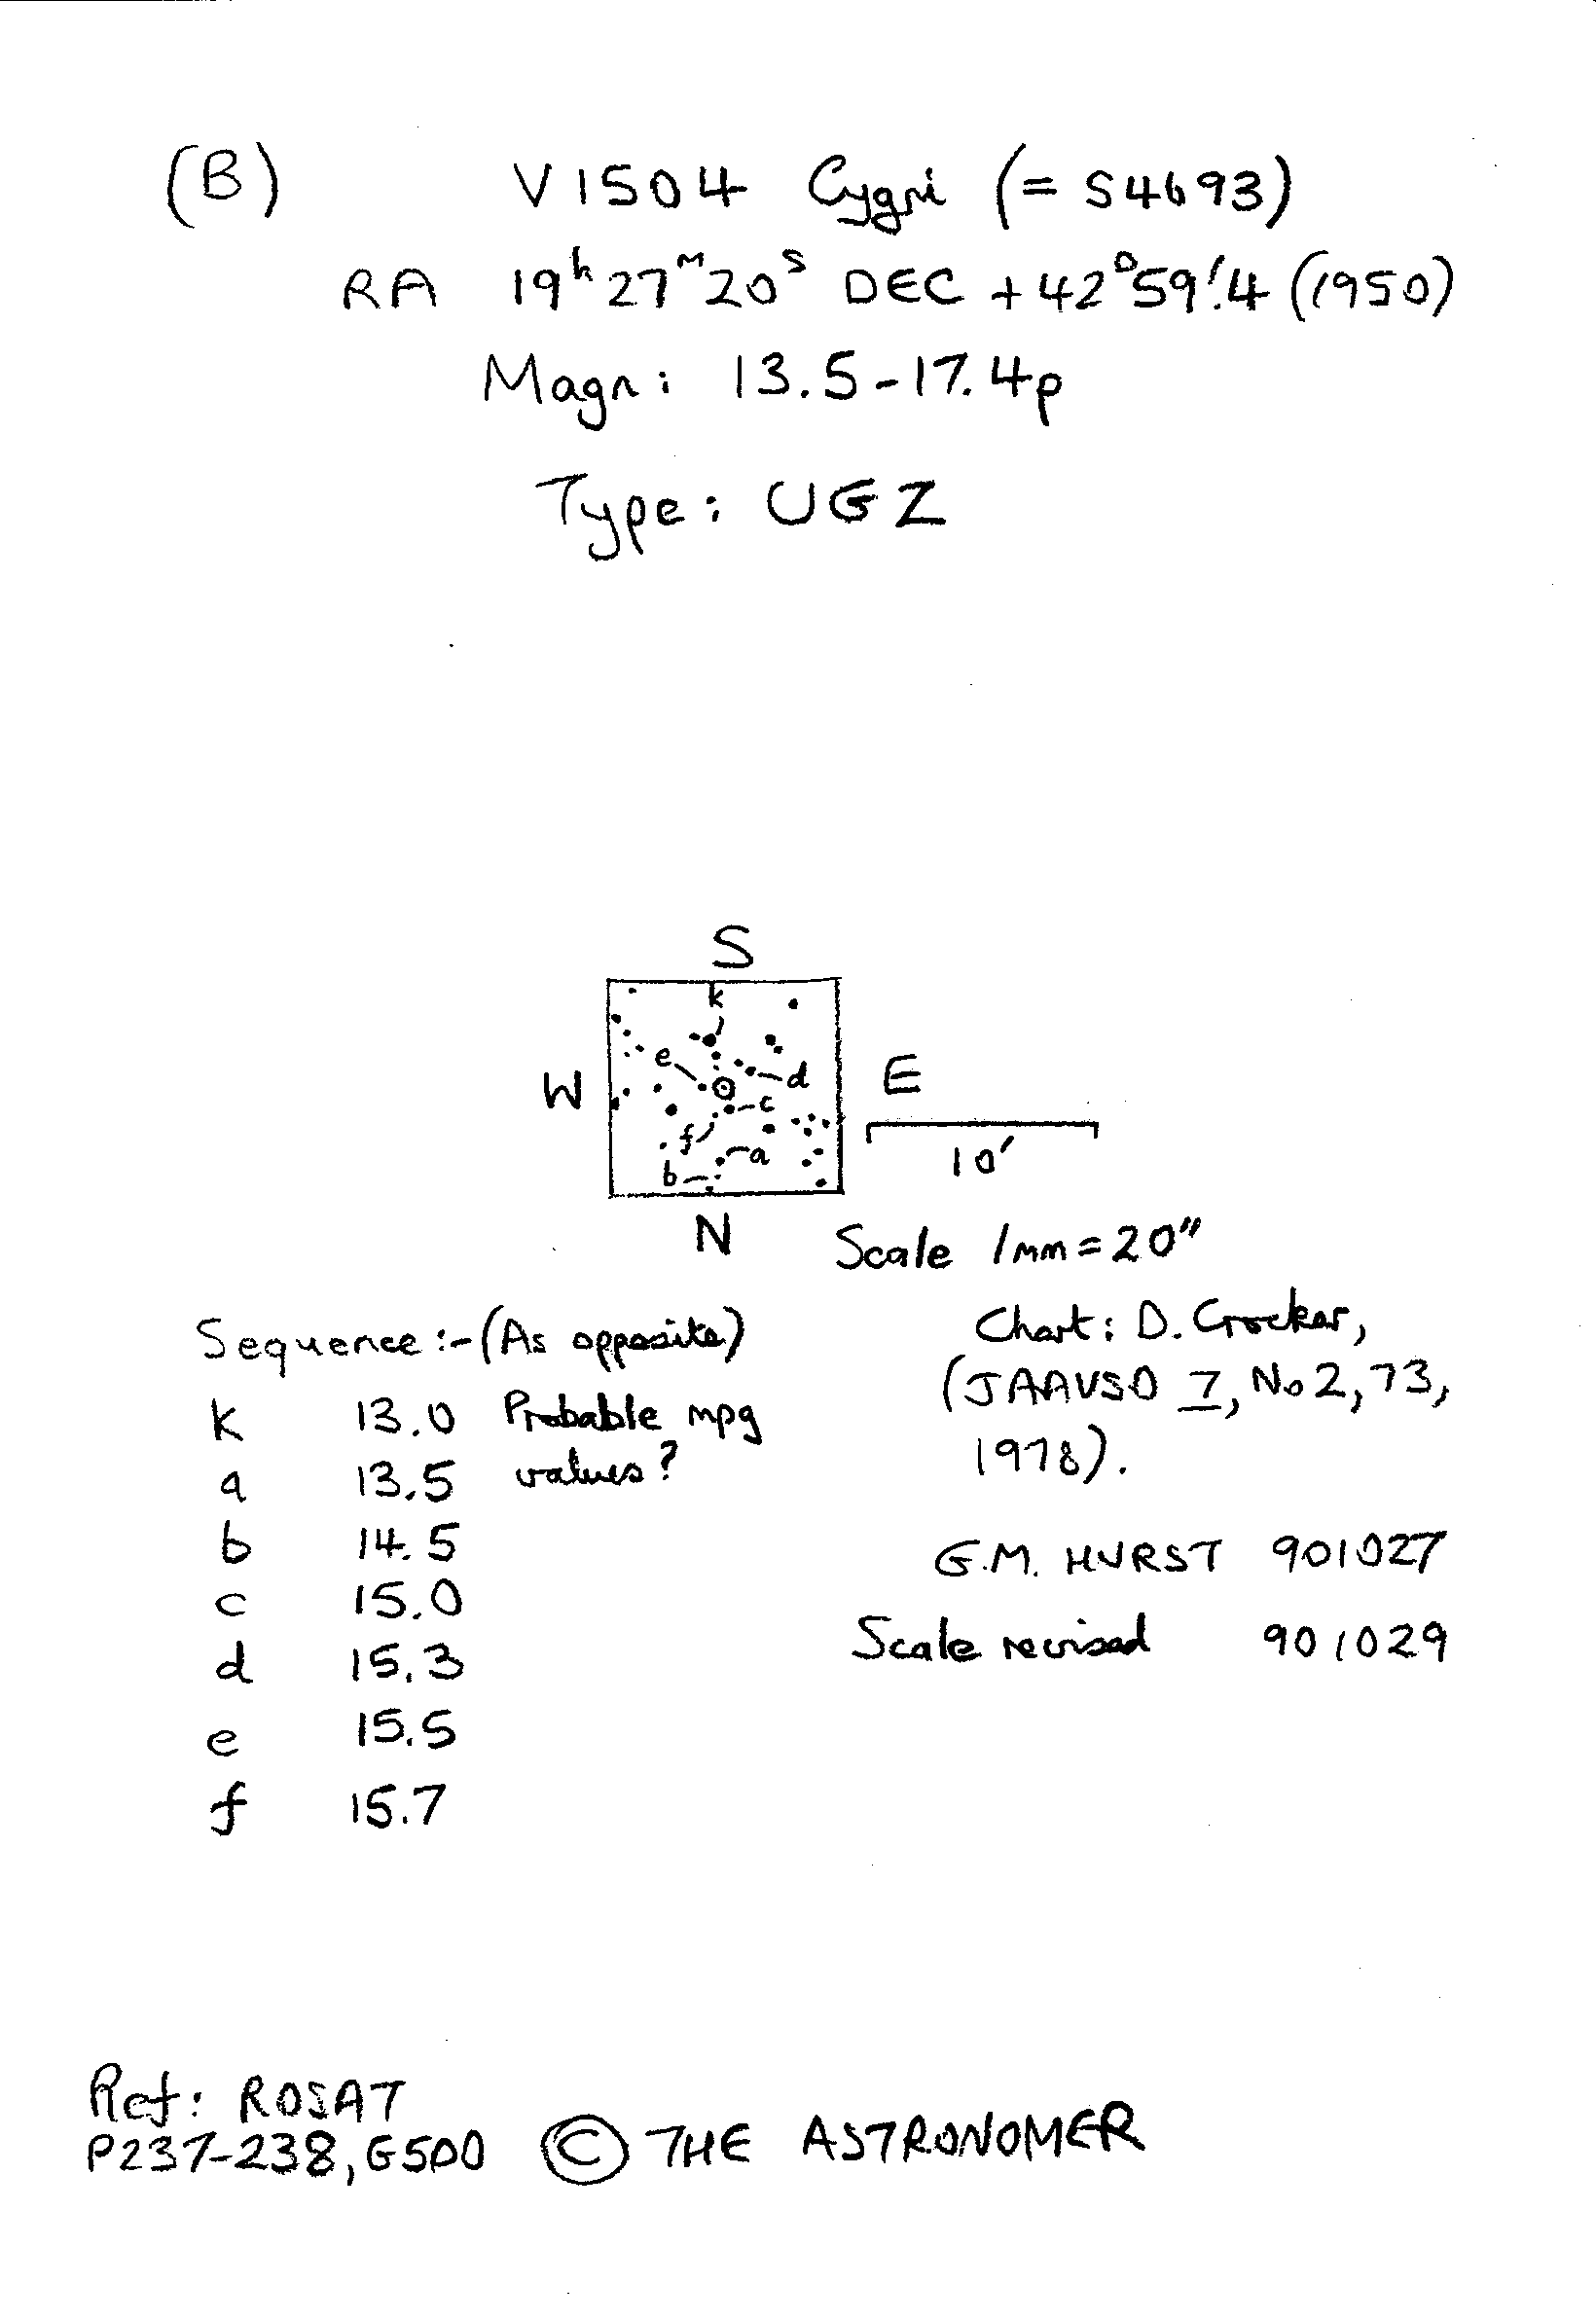 (B) V1504 Cygni (= S4693)
RA 19h 27m 20s DEC +42°59'.4 (1950)
Magn: 13.5-17.4p
Type: UGZ
S
k
e
d
W
E
c
f
a
b
10'
N
Scale 1mm = 20"
Sequence :- (As opposite)
k 13.0 Probable mpg
a 13.5 values?
b 14.5
c 15.0
d 15.3
e 15.5
f 15.7
Chart: D. Crocker,
(JAAVSO 7, No 2, 73,
1978).
G.M. HURST 901027
Scale revised 901029
Ref: ROSAT
P237-238, G500 © THE ASTRONOMER